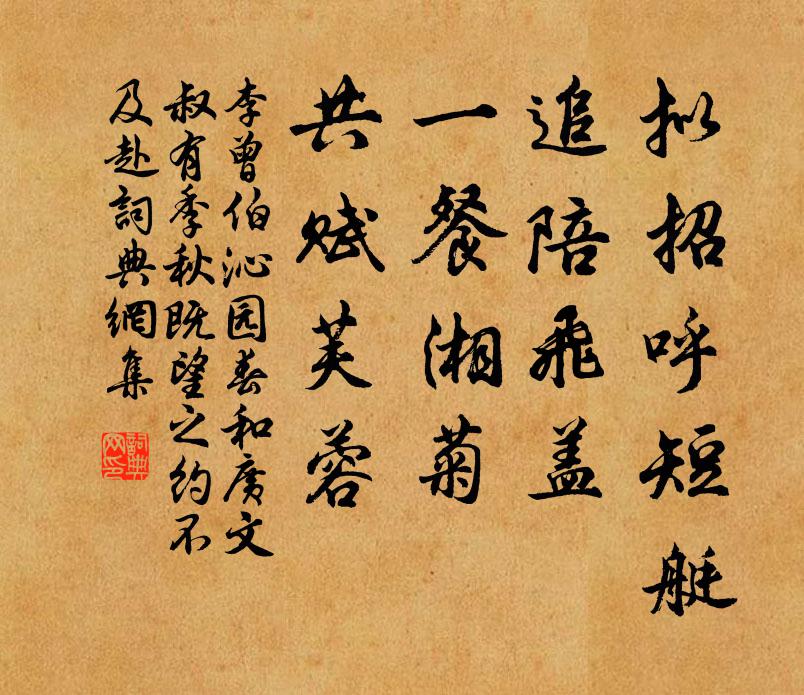 拟招呼短艇
追陪飞盖
一餐湘菊
共赋芙蓉
李曾伯沁园春和广文
叔有季秋既望之约不
及赴詞典網集
詞典网印